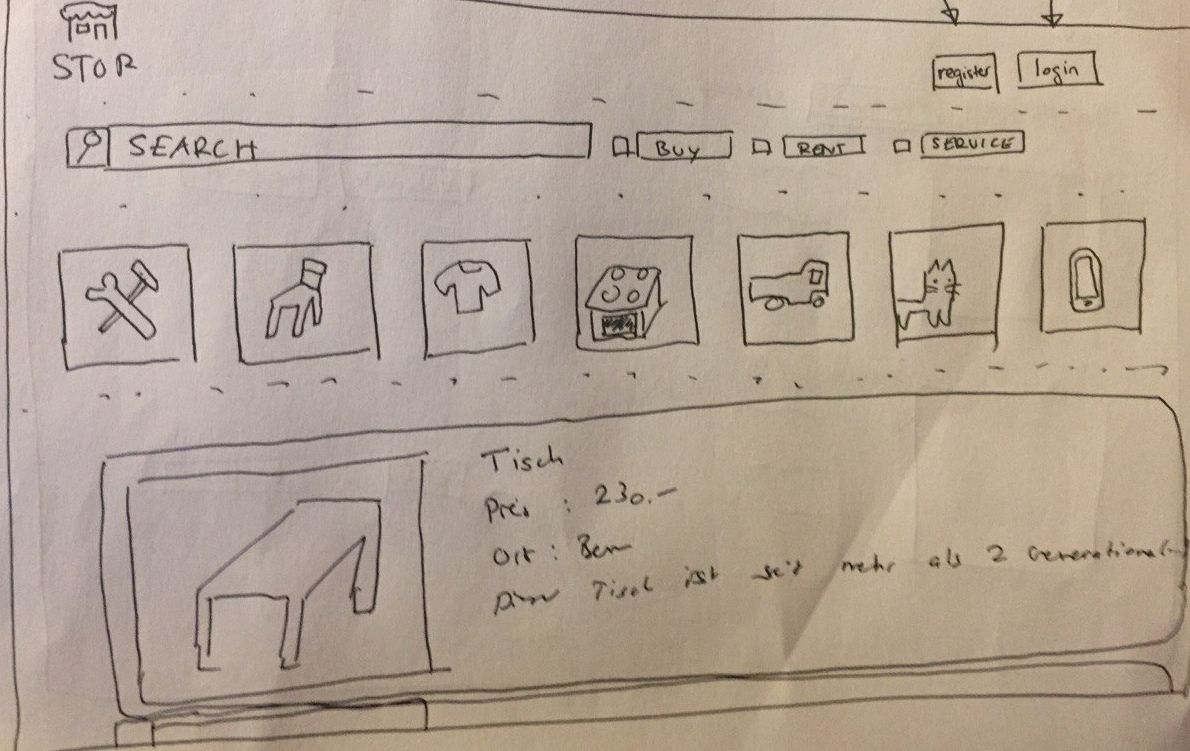 STOR
register login
SEARCH BUY RENT SERVICE
Tisch
Preis : 230.-
Ort : Bern
Dieser Tisch ist seit mehr als 2 Generationen